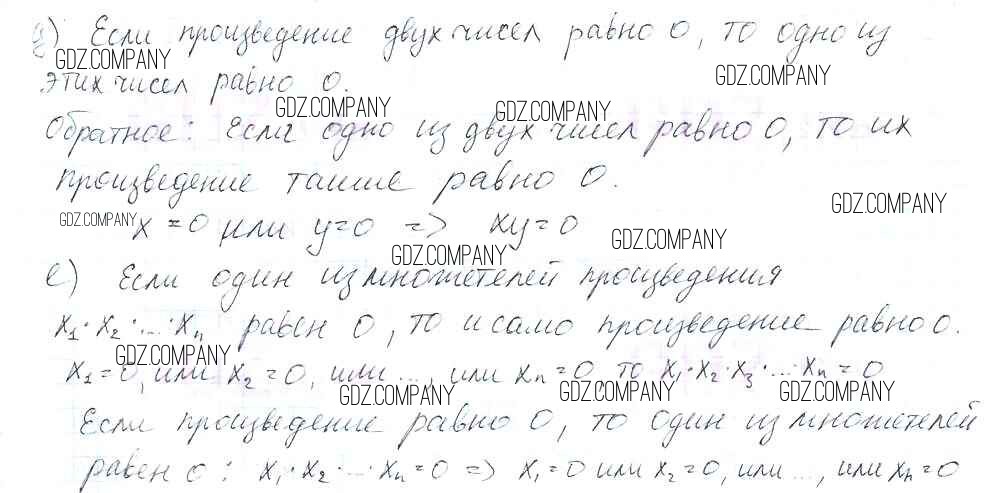 д) Если произведение двух чисел равно 0, то одно из
GDZ.COMPANY
GDZ.COMPANY
этих чисел равно 0.
GDZ.COMPANY
GDZ.COMPANY
Обратное: Если одно из двух чисел равно 0, то их
произведение также равно 0.
GDZ.COMPANY
GDZ.COMPANY
x = 0 или y = 0 => xy = 0
GDZ.COMPANY
GDZ.COMPANY
е) Если один из множетелей произведения
x₁ · x₂ · ... · xₙ равен 0, то и само произведение равно 0.
GDZ.COMPANY
x₁ = 0, или x₂ = 0, или ..., или xₙ = 0, то x₁ · x₂ · x₃ · ... · xₙ = 0
GDZ.COMPANY
GDZ.COMPANY
GDZ.COMPANY
Если произведение равно 0, то один из множетелей
равен 0: x₁ · x₂ · ... · xₙ = 0 => x₁ = 0 или x₂ = 0, или ..., или xₙ = 0